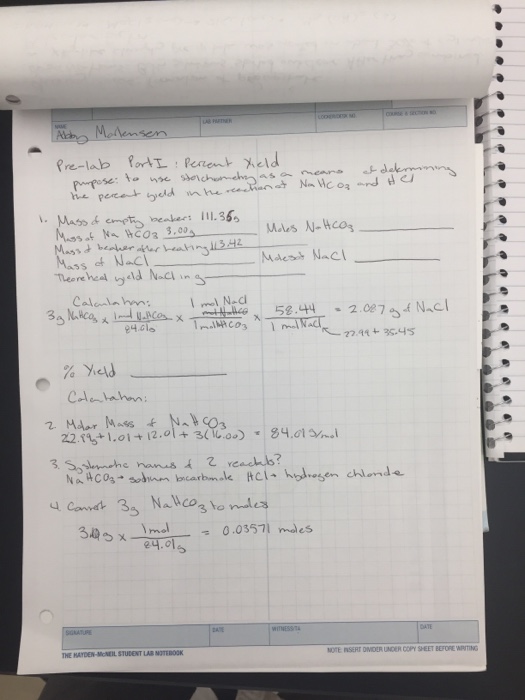 NAME
LAB PARTNER
LOCKER/DESK NO.
COURSE & SECTION NO.
Abby Mortensen
Pre-lab Part I : Percent Yield
purpose: to use stoichiometry as a means of determining
the percent yield in the reaction of NaHCO3 and HCl
1. Mass of empty beaker: 111.36g
Mass of NaHCO3 3.00g
Moles NaHCO3
Mass of beaker after heating 113.42
Mass of NaCl
Moles of NaCl
Theoretical yield NaCl in g
Calculation:
3g NaHCO3 × 1 mol NaHCO3 / 84.01g × 1 mol NaCl / 1 mol NaHCO3 × 58.44 / 1 mol NaCl = 2.087 g of NaCl
22.99 + 35.45
% Yield
Calculation:
2. Molar Mass of NaHCO3
22.99+1.01+12.01+3(16.00) = 84.01 g/mol
3. Systematic names of 2 reactants?
NaHCO3→ sodium bicarbonate HCl→ hydrogen chloride
4. Convert 3g NaHCO3 to moles
3.00g × 1mol / 84.01g = 0.03571 moles
SIGNATURE
DATE
WITNESS/TA
DATE
THE HAYDEN-McNEIL STUDENT LAB NOTEBOOK
NOTE: INSERT DIVIDER UNDER COPY SHEET BEFORE WRITING